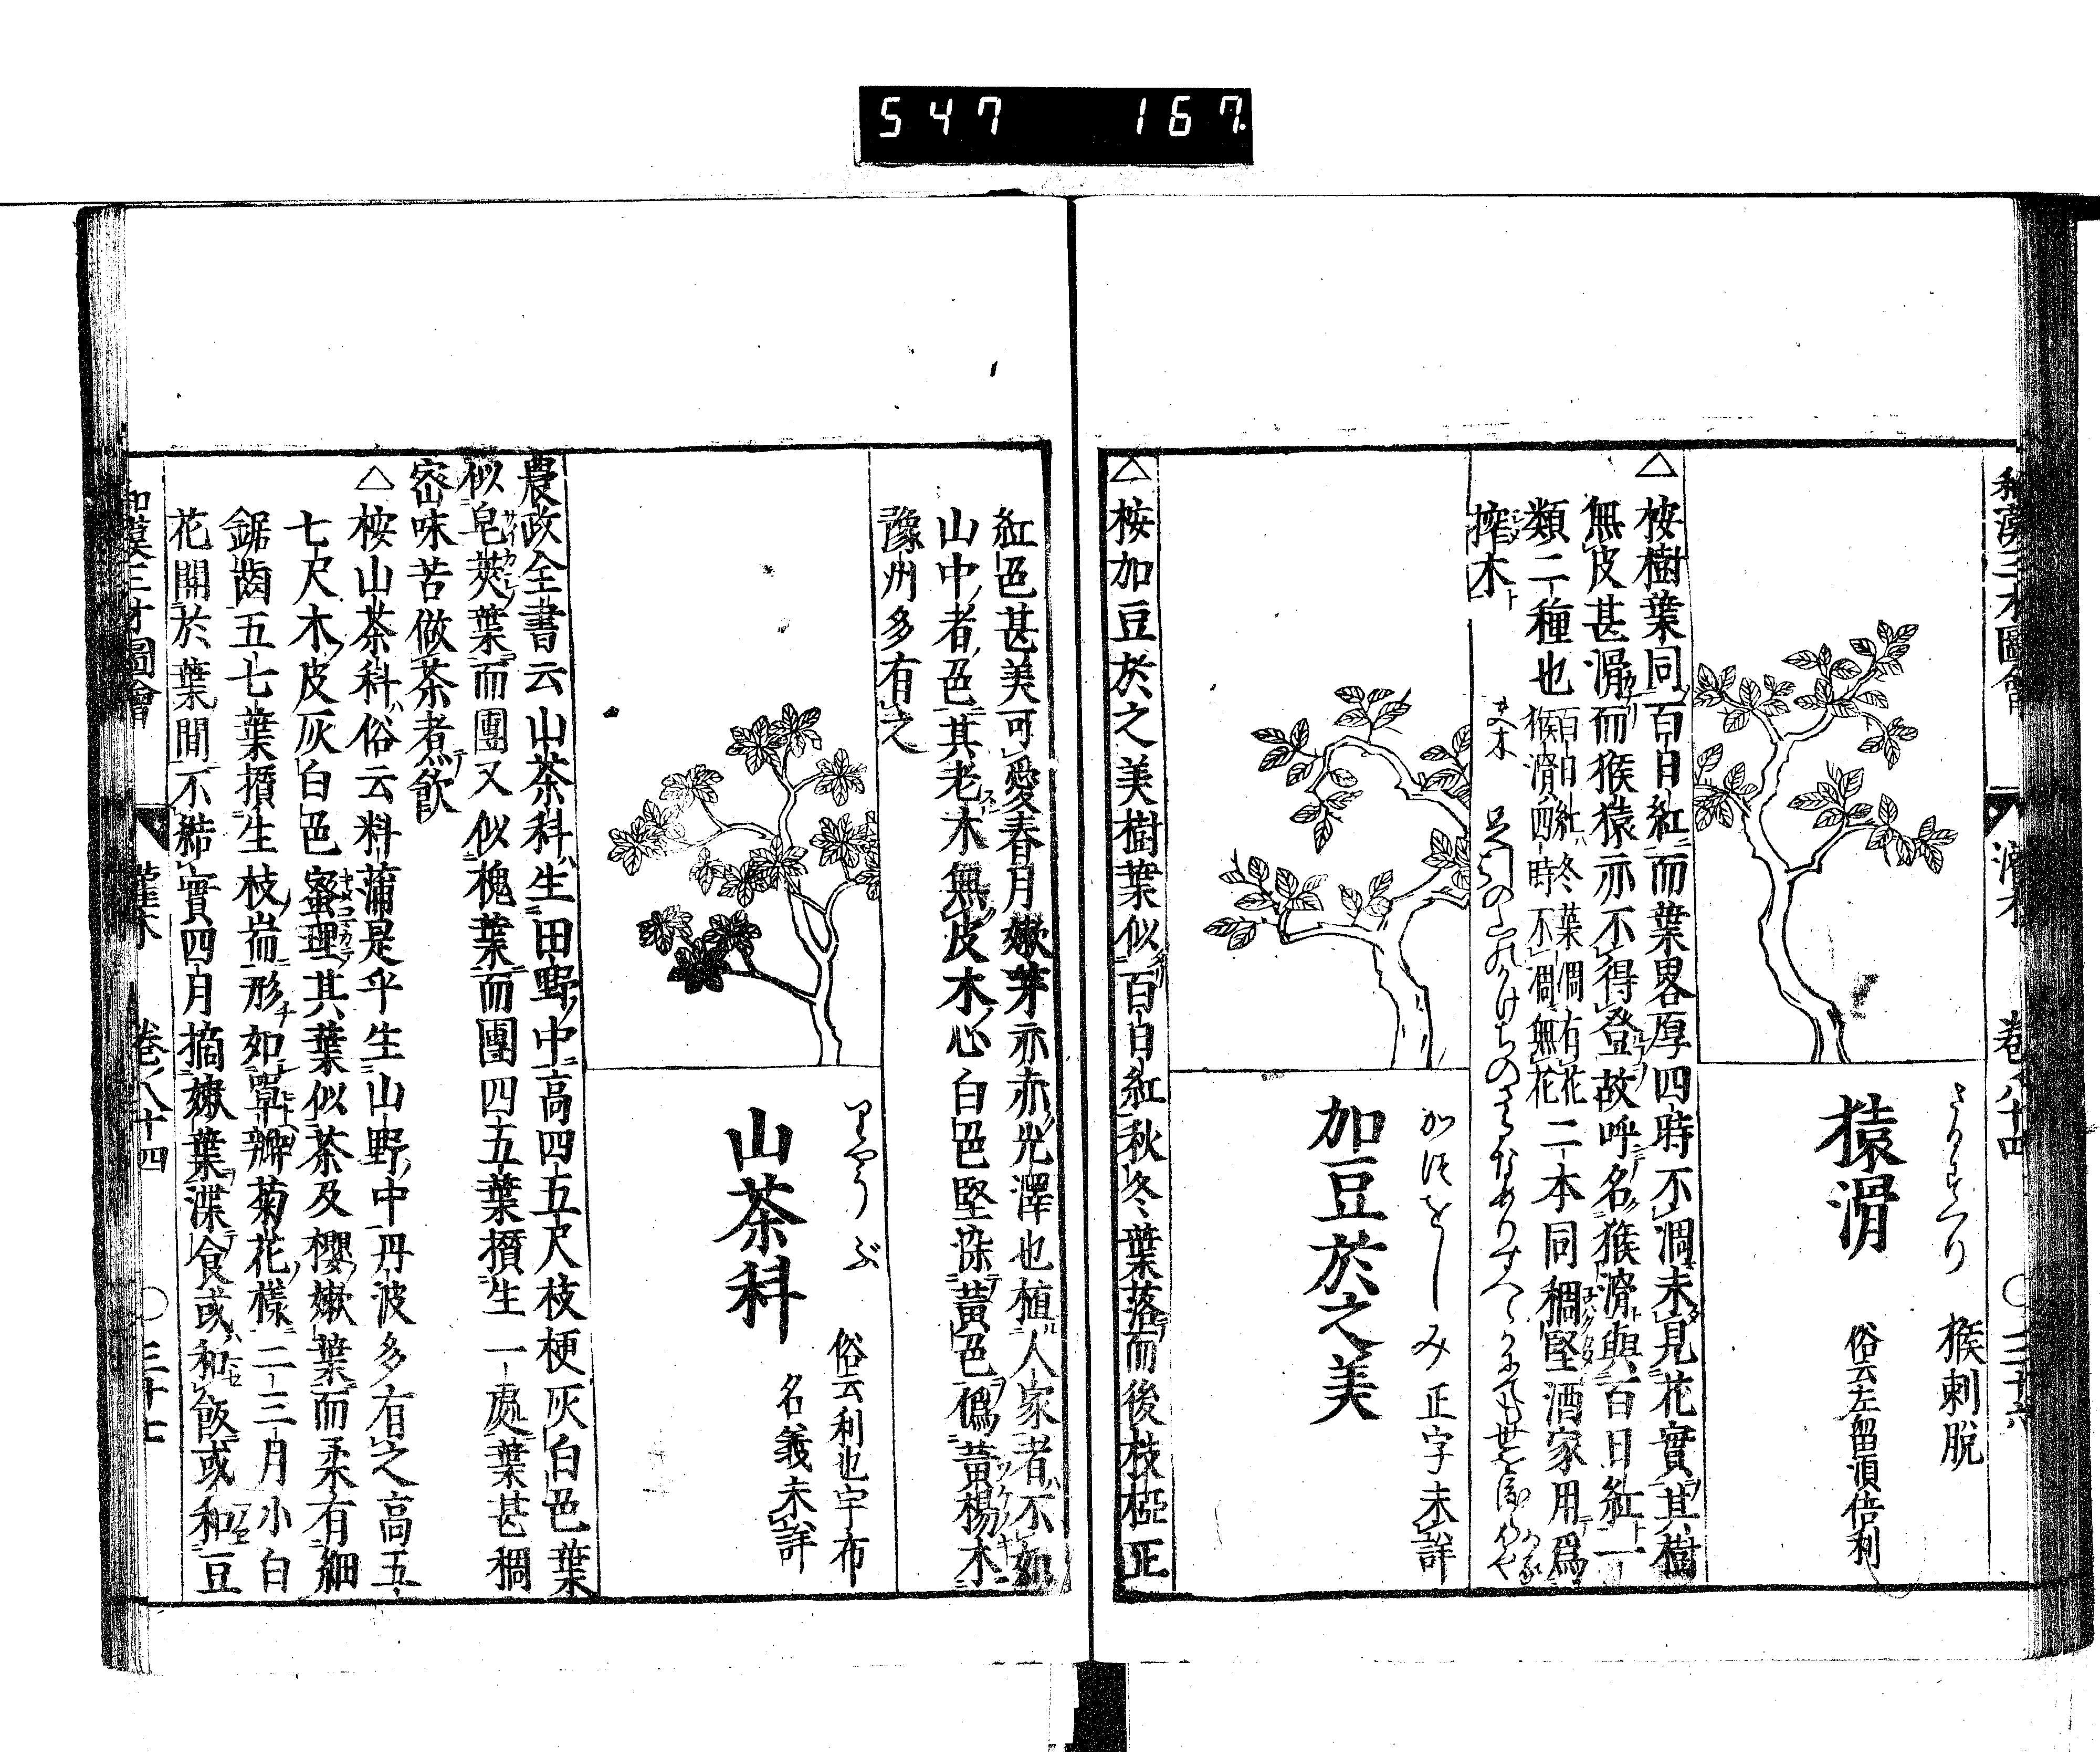 547 167
和漢三才圖會 灌木 卷八十四 ○三十六
さるすべり 猴刺脱
俗云左留須倍利
猿滑
△桉樹葉同百日紅而葉畧厚四時不凋未見花實其樹
無皮甚滑而猴猿亦不得登故呼名猴滑與百日紅一
類二種也百日紅冬葉凋有花猴滑四時不凋無花二本同稠堅酒家用爲
搾木
夫木
かはをしみ 正字未詳
加豆於之美
△桉加豆於之美樹葉似百日紅秋冬葉落而後枝椏正
紅色甚美可愛春月嫩芽亦赤光澤也植人家者不如
山中者色其老木無皮木心白色堅染黃色僞黃楊木
豫州多有之
りやうぶ
俗云利也宇布
名義未詳
山茶科
農政全書云山茶科生田野中高四五尺枝梗灰白色葉
似皂莢葉而團又似槐葉而團四五葉攢生一處葉甚稠
密味苦做茶煮飮
△桉山茶科俗云料蒲是乎生山野中丹波多有之高五
七尺木皮灰白色蜜理其葉似茶及櫻嫩葉而柔有細
鋸齒五七葉攢生枝耑形如單瓣菊花樣二三月小白
花開於葉間不結實四月摘嫩葉渫食或和飯或和豆
和漢三才圖會 灌木 卷八十四 ○三十七